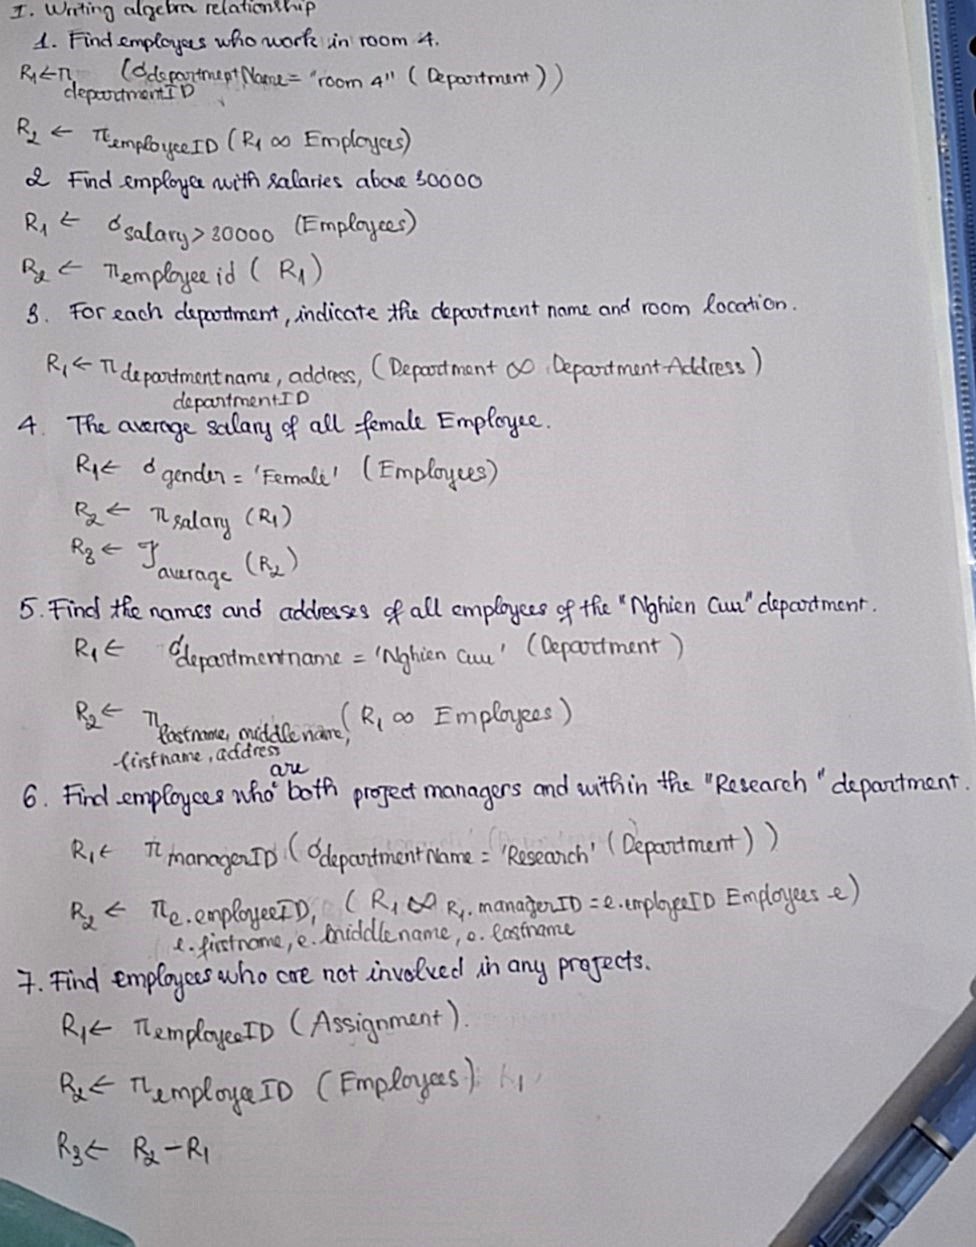 I. Writing algebra relationship
1. Find employees who work in room 4.
R1 ← π departmentID (σ departmentName = "room 4" (Department))
R2 ← π employeeID (R1 ∞ Employees)
2 Find employee with salaries above 30000
R1 ← σ salary > 30000 (Employees)
R2 ← π employee id (R1)
3. For each department, indicate the department name and room location.
R1 ← π departmentname, address, departmentID (Department ∞ DepartmentAddress)
4. The average salary of all female Employee.
R1 ← σ gender = 'Female' (Employees)
R2 ← π salary (R1)
R3 ← ℱ average (R2)
5. Find the names and addresses of all employees of the "Nghien Cuu" department.
R1 ← σ departmentname = 'Nghien Cuu' (Department)
R2 ← π lastname, middlename, firstname, address (R1 ∞ Employees)
6. Find employees who are both project managers and within the "Research" department.
R1 ← π managerID (σ departmentName = 'Research' (Department))
R2 ← π e.employeeID, e.firstname, e.middlename, e.lastname (R1 ∞ R1.managerID = e.employeeID Employees e)
7. Find employees who are not involved in any projects.
R1 ← π employeeID (Assignment).
R2 ← π employeeID (Employees)
R3 ← R2 - R1